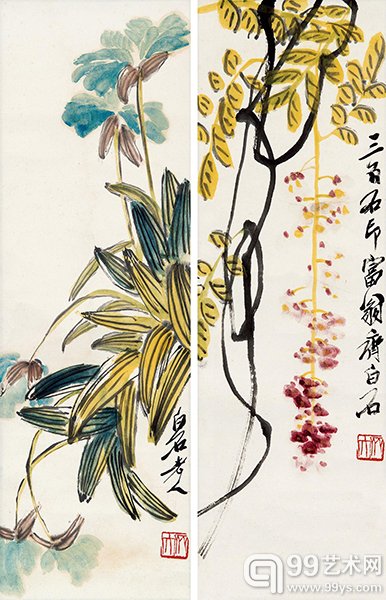 三百石印富翁齊白石
白石老人
99艺术网
www.99ys.com